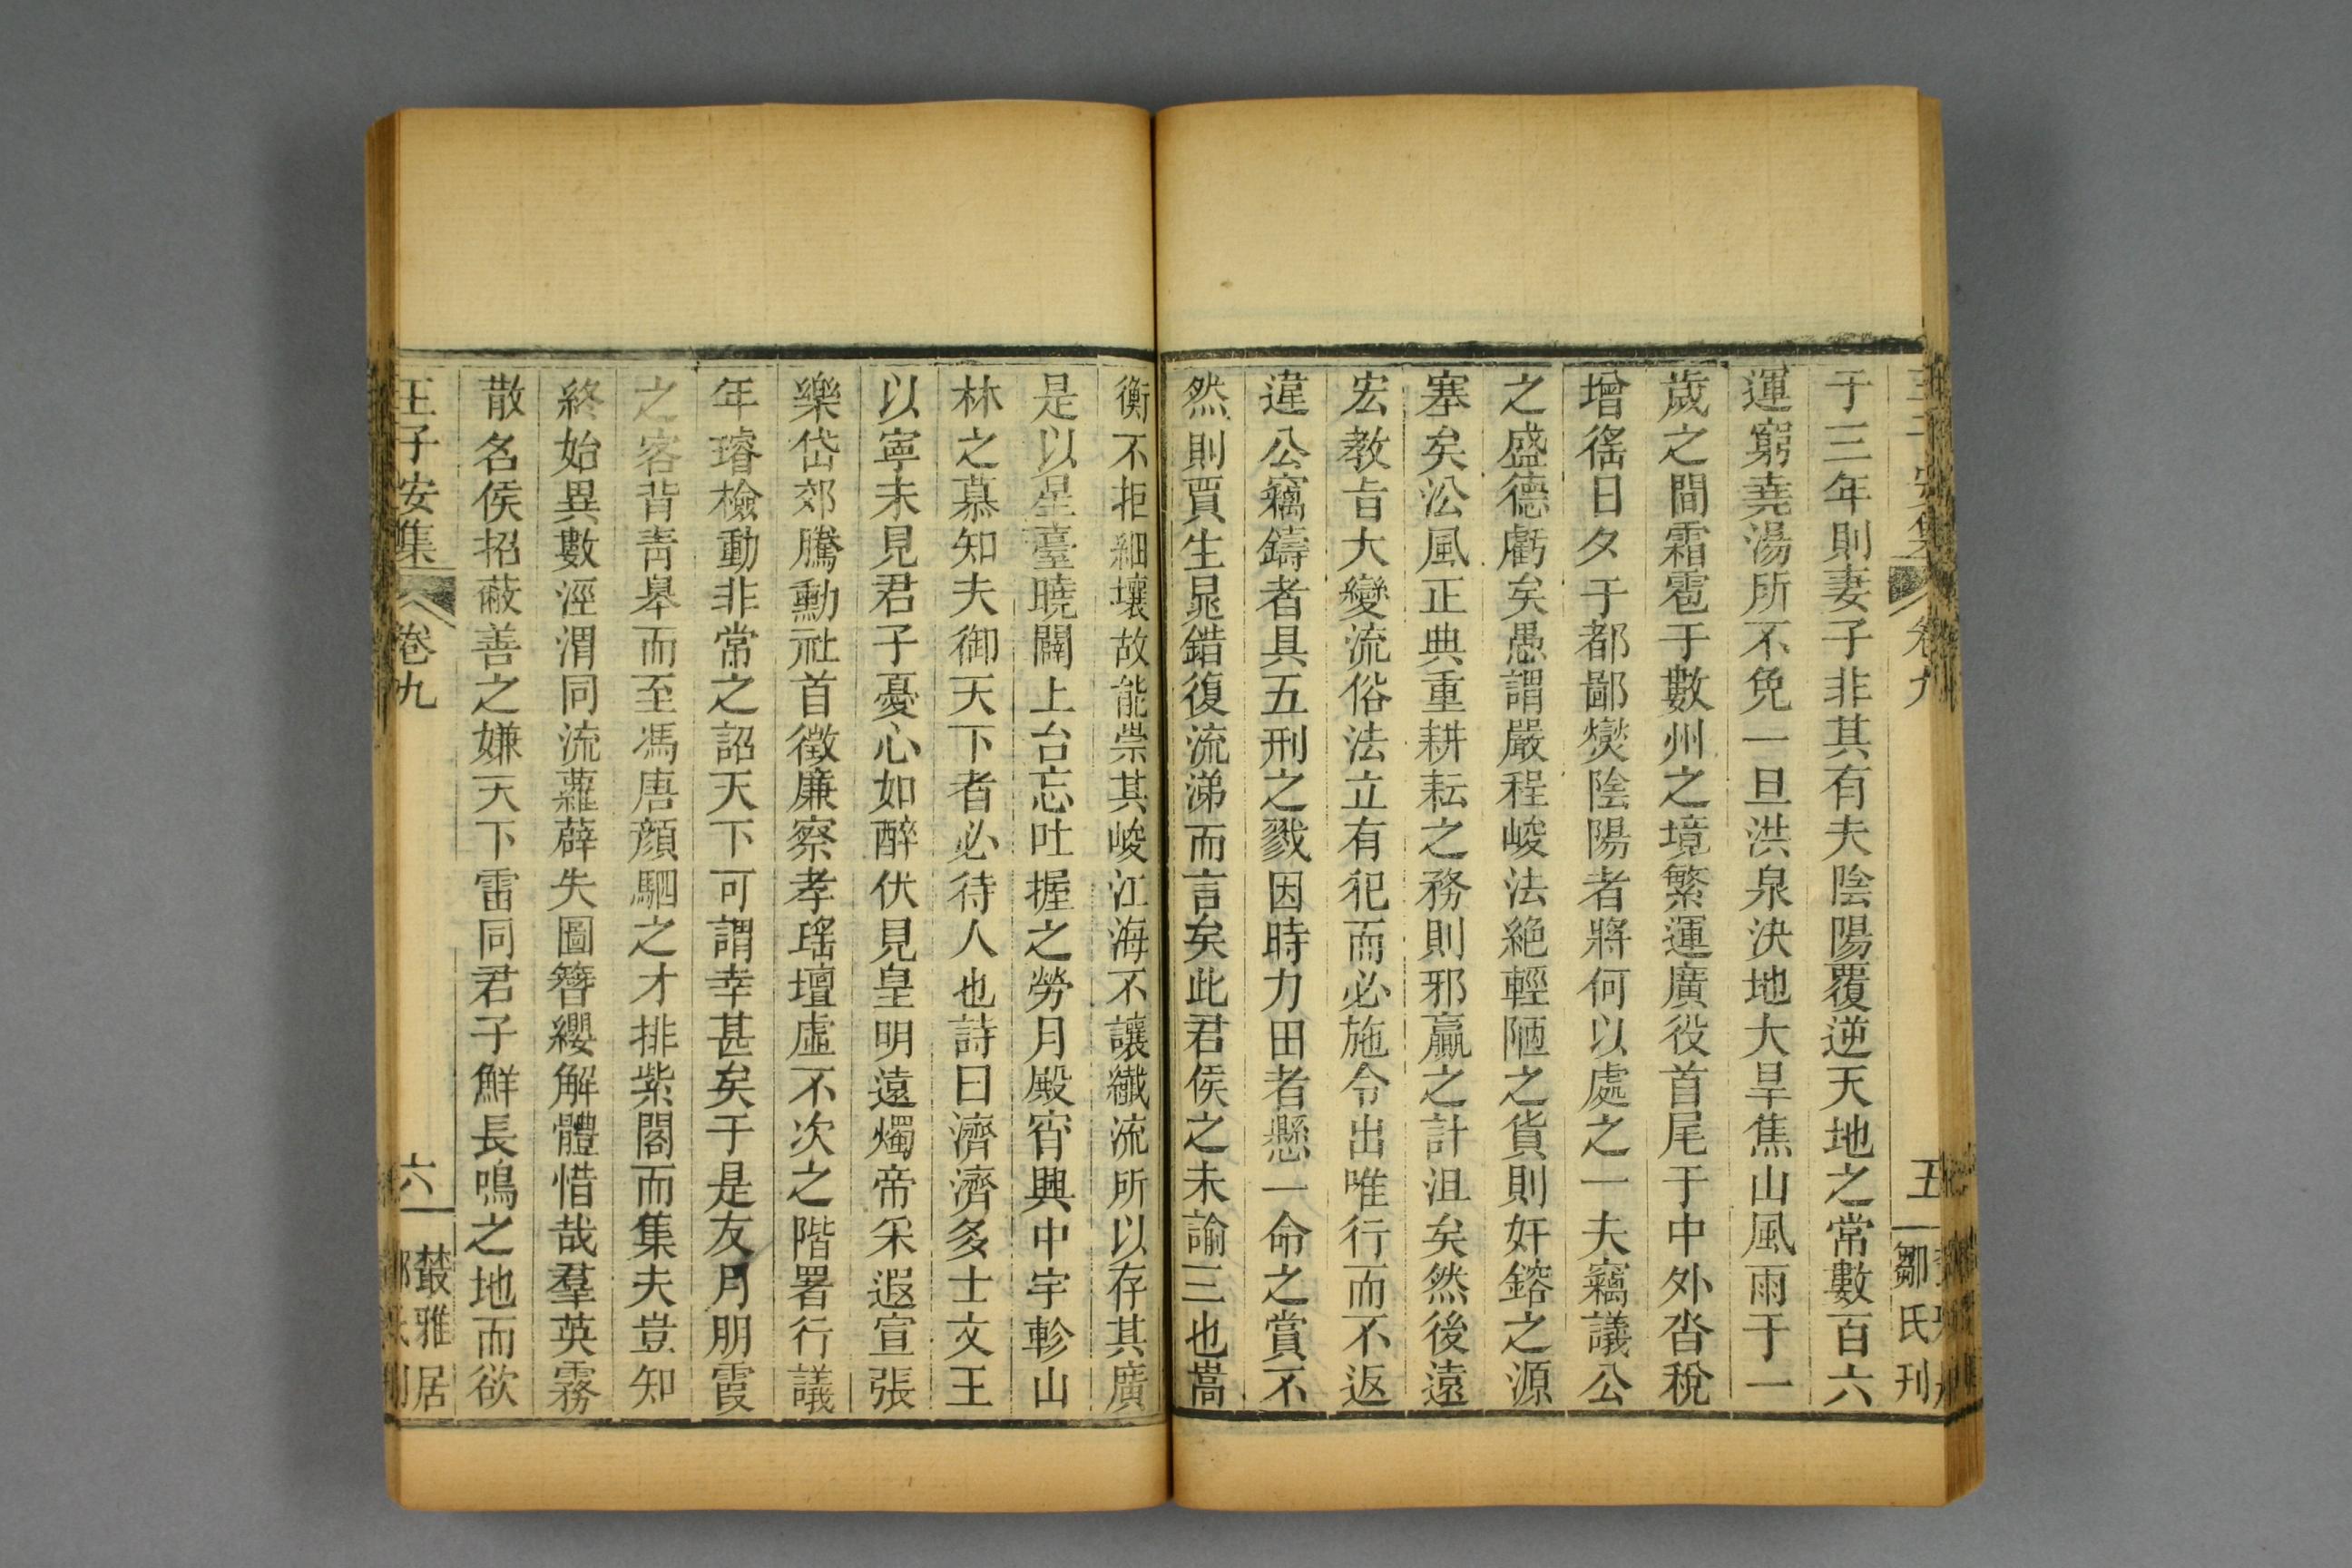 于三年則妻子非其有夫陰陽覆逆天地之常數百六
運窮堯湯所不免一旦洪泉決地大旱焦山風雨于一
歲之間霜雹于數州之境繁運廣役首尾于中外呰稅
增徭日夕于都鄙爕陰陽者將何以處之一夫竊議公
之盛德虧矣愚謂嚴程峻法絶輕陋之貨則奸鎔之源
塞矣㳂風正典重耕耘之務則邪贏之計沮矣然後遠
宏教㫖大變流俗法立有犯而必施令出唯行而不返
違公竊鑄者具五刑之戮因時力田者懸一命之賞不
然則賈生鼂錯復流涕而言矣此君侯之未諭三也嵩
衡不拒細壤故能崇其峻江海不讓纖流所以存其廣
是以星臺曉闢上台忘吐握之勞月殿宵興中宇軫山
林之慕知夫御天下者必待人也詩曰濟濟多士文王
以寧未見君子憂心如醉伏見皇明遠燭帝采遐宣張
樂岱郊騰勳社首徵廉察孝瑤壇虛不次之階署行議
年璿檢動非常之詔天下可謂幸甚矣于是友月朋霞
之客背青皋而至馮唐顔駟之才排紫閣而集夫豈知
終始異數涇渭同流蘿薜失圖簪纓解體惜哉羣英霧
散名侯招蔽善之嫌天下雷同君子鮮長鳴之地而欲
王子安集
卷九
六
叢雅居
卷九
五
鄒氏刊